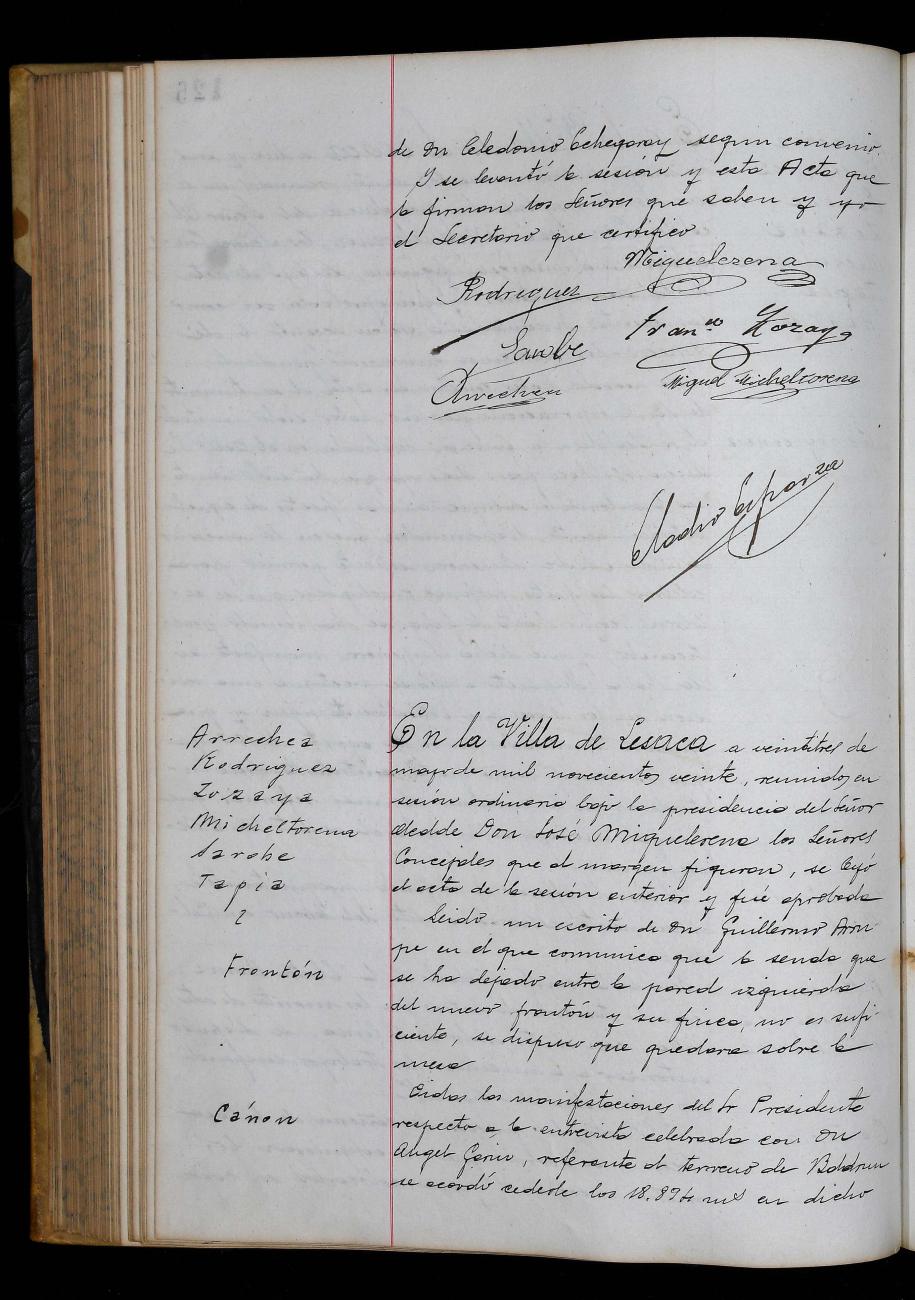 de Dn Celedonio Echegaray segun convenio.
Y se levantó la sesión y esta Acta que
la firman los Señores que saben y yo
el Secretario que certifico
Miguelerena
Rodriguez
Fran.co Zozaya
Sarobe
Arrechea
Miguel Micheltorena
Eladio Esparza
En la Villa de Lesaca a veintitres de
mayo de mil novecientos veinte, reunidos en
sesión ordinaria bajo la presidencia del Señor
Alcalde Don José Miguelerena los Señores
Concejales que al margen figuran, se leyó
el acta de la sesión anterior y fué aprobada
Leido un escrito de Dn Guillermo Arru-
pe en el que comunica que la senda que
se ha dejado entre la pared izquierda
del nuevo frontón y su finca, no es sufi-
ciente, se dispuso que quedara sobre la
mesa
Oidas las manifestaciones del Sr Presidente
respecto a la entrevista celebrada con Dn
Angel Garin, referente al terreno de
se acordó cederle los 18.894 ms en dicho
Arrechea
Rodriguez
Zozaya
Micheltorena
Sarobe
Tapia
Frontón
Cánon